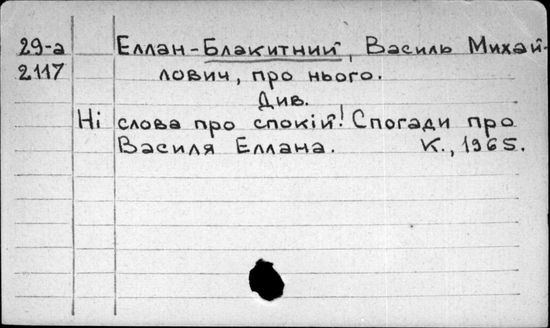 29-а Еллан-Блакитний, Василь Михай-
2117 лович, про нього.
Див.
Ні слова про спокій! Спогади про
Василя Еллана. К., 1965.